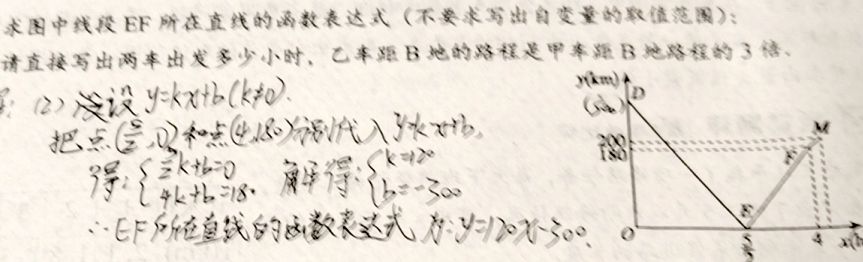 求图中线段 EF 所在直线的函数表达式（不要求写出自变量的取值范围）；
请直接写出两车出发多少小时，乙车距 B 地的路程是甲车距 B 地路程的 3 倍．
(2) 设 y=kx+b(k≠0).
把点(5/2,0)和点(4,180)分别代入 y=kx+b,
得:{5/2k+b=0 4k+b=180. 解得:{k=120 b=-300
∴EF所在直线的函数表达式为:y=120x-300.
y(km)
D
200
180
M
F
E
O
5/2
4
x(h